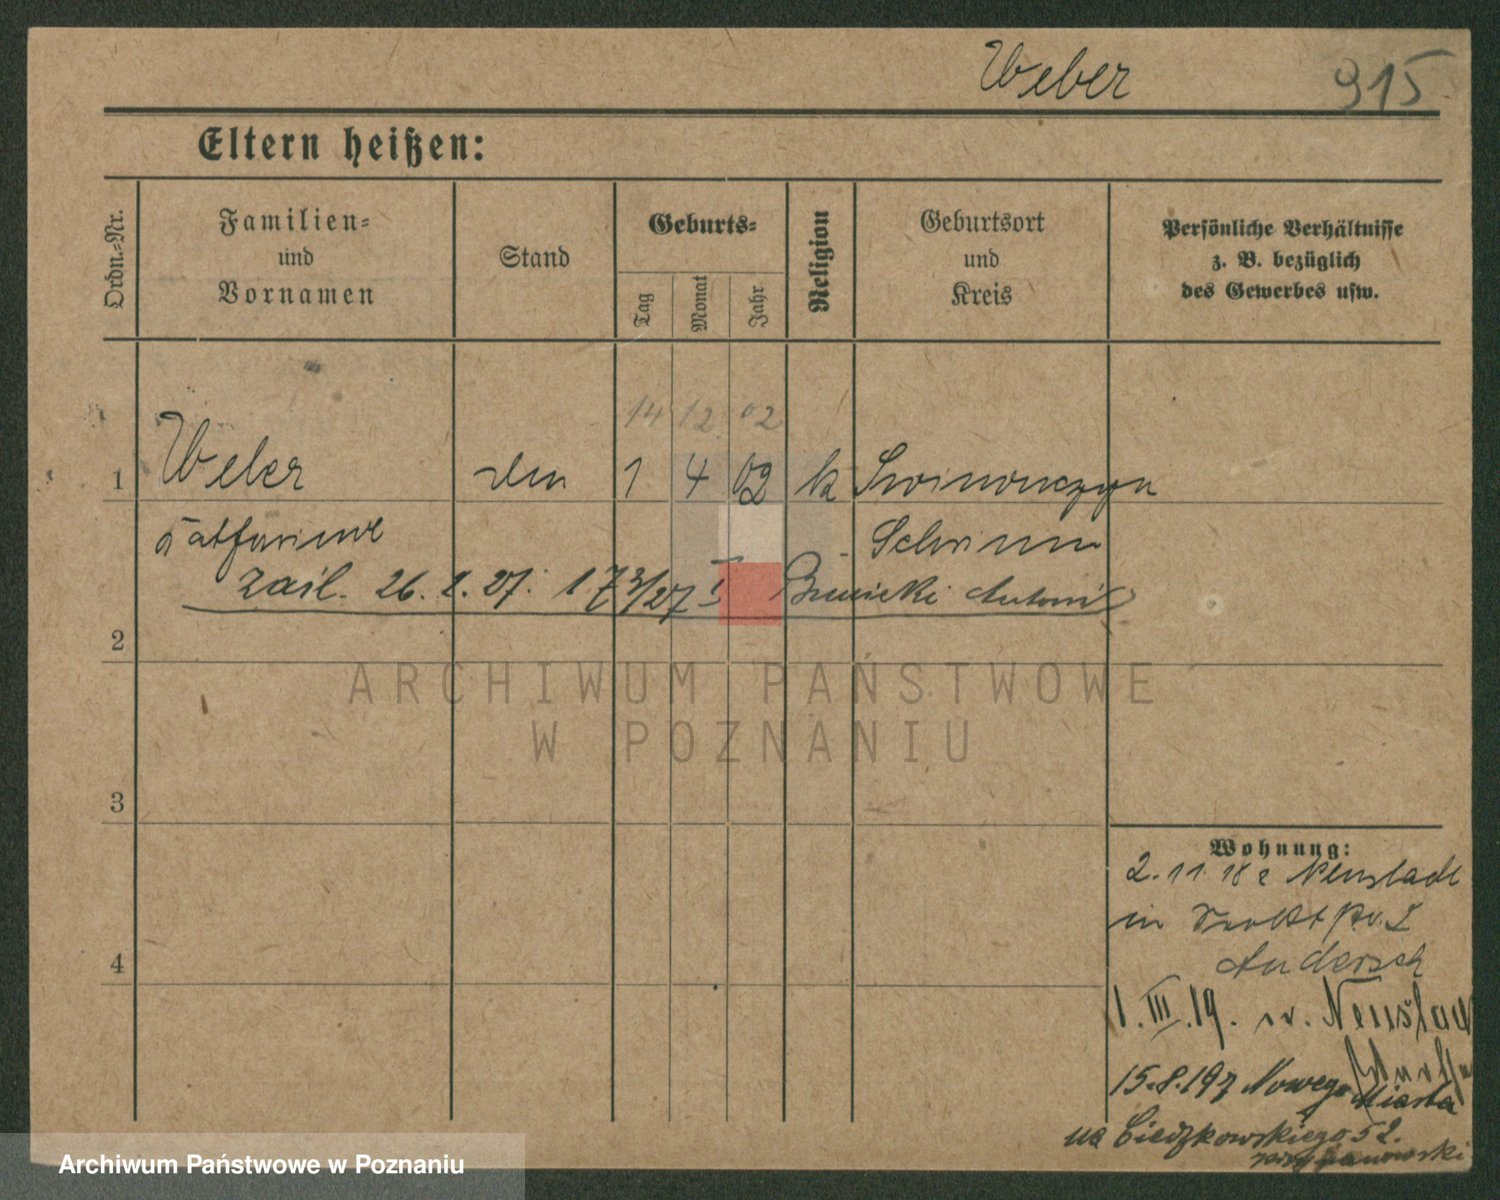 Weber 915
Eltern heißen:
Ordn.-Nr.
Familien-
und
Vornamen
Stand
Geburts-
Tag
Monat
Jahr
Religion
Geburtsort
und
Kreis
Persönliche Verhältnisse
z. B. bezüglich
des Gewerbes usw.
14 12 02
1 Weber 1 4 02 k
Schrimm
26. 27. 173/27 Antoni
2
ARCHIWUM PAŃSTWOWE
W POZNANIU
3
Wohnung:
2. 11. 18 Neustadt
in
4
Andersch
1. III. 19. Neustadt
15.8.19 z Nowego Miasta
na Cieszkowskiego 5
Archiwum Państwowe w Poznaniu